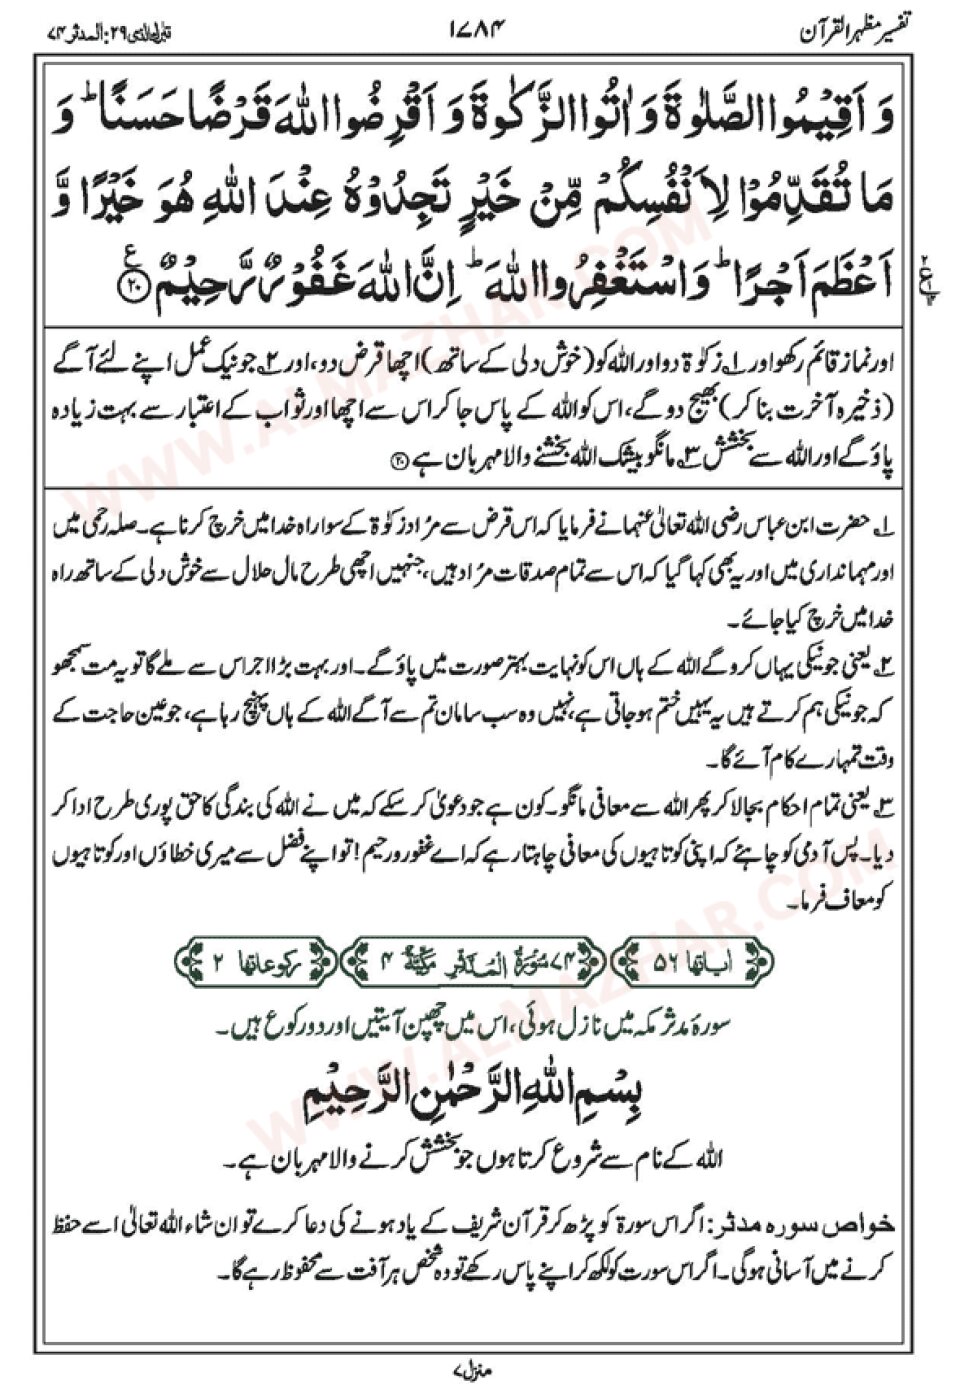 تفسیر مظہر القرآن
۱۷۸۴
تبٰرک الذی ۲۹: المدثر ۷۴
وَ اَقِیْمُوا الصَّلٰوةَ وَ اٰتُوا الزَّكٰوةَ وَ اَقْرِضُوا اللّٰهَ قَرْضًا حَسَنًا ؕ وَ
مَا تُقَدِّمُوْا لِاَنْفُسِكُمْ مِّنْ خَیْرٍ تَجِدُوْهُ عِنْدَ اللّٰهِ هُوَ خَیْرًا وَّ
اَعْظَمَ اَجْرًا ؕ وَ اسْتَغْفِرُوا اللّٰهَ ؕ اِنَّ اللّٰهَ غَفُوْرٌ رَّحِیْمٌ ﴿۲۰﴾ ع
اور نماز قائم رکھو اور ۱؎ زکوٰۃ دو اور اللہ کو (خوش دلی کے ساتھ) اچھا قرض دو، اور ۲؎ جو نیک عمل اپنے لئے آگے
(ذخیرہ آخرت بنا کر) بھیج دو گے، اس کو اللہ کے پاس جا کر اس سے اچھا اور ثواب کے اعتبار سے بہت زیادہ
پاؤ گے اور اللہ سے بخشش ۳؎ مانگو بیشک اللہ بخشنے والا مہربان ہے ﴿۲۰﴾
۱؎ حضرت ابن عباس رضی اللہ تعالیٰ عنہما نے فرمایا کہ اس قرض سے مراد زکوٰۃ کے سوا راہ خدا میں خرچ کرنا ہے۔ صلہ رحمی میں
اور مہمانداری میں اور یہ بھی کہا گیا کہ اس سے تمام صدقات مراد ہیں، جنہیں اچھی طرح مال حلال سے خوش دلی کے ساتھ راہ
خدا میں خرچ کیا جائے۔
۲؎ یعنی جو نیکی یہاں کرو گے اللہ کے ہاں اس کو نہایت بہتر صورت میں پاؤ گے۔ اور بہت بڑا اجر اس سے ملے گا تو یہ مت سمجھو
کہ جو نیکی ہم کرتے ہیں یہ یہیں ختم ہو جاتی ہے، نہیں وہ سب سامان تم سے آگے اللہ کے ہاں پہنچ رہا ہے، جو عین حاجت کے
وقت تمہارے کام آئے گا۔
۳؎ یعنی تمام احکام بجا لا کر پھر اللہ سے معافی مانگو۔ کون ہے جو دعویٰ کر سکے کہ میں نے اللہ کی بندگی کا حق پوری طرح ادا کر
دیا۔ پس آدمی کو چاہئے کہ اپنی کوتاہیوں کی معافی چاہتا رہے کہ اے غفور و رحیم! تو اپنے فضل سے میری خطاؤں اور کوتاہیوں
کو معاف فرما۔
اٰیاتھا ۵۶
۷۴ سُوْرَةُ الْمُدَّثِّرِ مَكِّيَّةٌ ۴
رکوعاتھا ۲
سورۂ مدثر مکہ میں نازل ہوئی، اس میں چھپن آیتیں اور دو رکوع ہیں۔
بِسْمِ اللّٰهِ الرَّحْمٰنِ الرَّحِیْمِ
اللہ کے نام سے شروع کرتا ہوں جو بخشش کرنے والا مہربان ہے۔
خواص سورہ مدثر: اگر اس سورۃ کو پڑھ کر قرآن شریف کے یاد ہونے کی دعا کرے تو ان شاء اللہ تعالیٰ اسے حفظ
کرنے میں آسانی ہوگی۔ اگر اس سورت کو لکھ کر اپنے پاس رکھے تو وہ شخص ہر آفت سے محفوظ رہے گا۔
منزل ۷
WWW.ALMAZHAR.COM
WWW.ALMAZHAR.COM